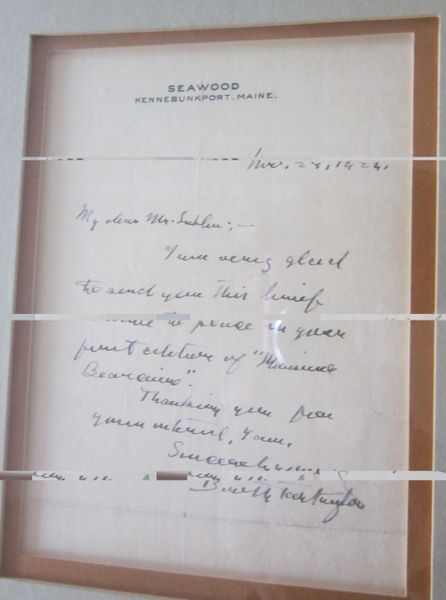 SEAWOOD
KENNEBUNKPORT, MAINE.
Nov.
My dear Mr.
I am very glad
to send you this brief
to in your
first edition of "Monsieur
Beaucaire".
Thanking you for
your interest, I am,
Booth Tarkington